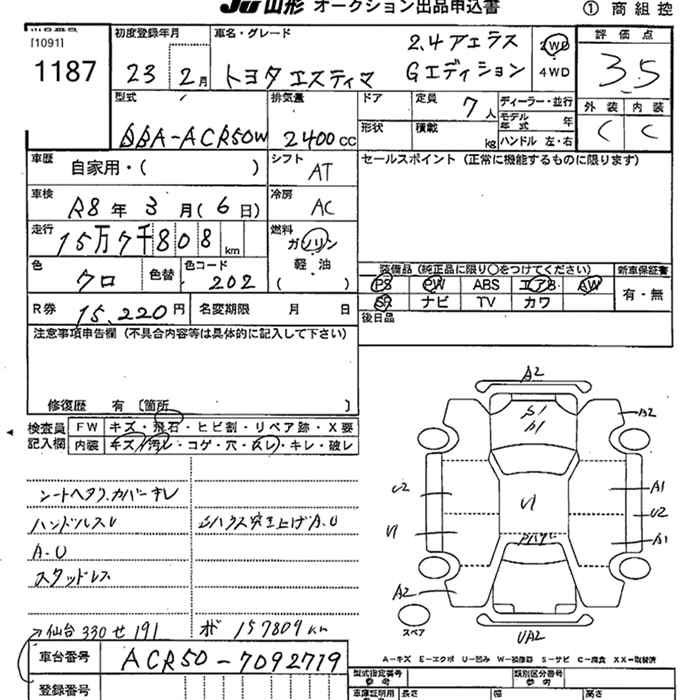 JU山形 オークション出品申込書
① 商組控
[1091]
1187
初度登録年月
23 2月
車名・グレード
2.4アエラス
トヨタエスティマ Gエディション
2WD
4WD
評価点
3.5
型式
DBA-ACR50W
排気量
2400cc
ドア
定員 7人
ディーラー・並行
モデル年式 年
形状
積載 kg
ハンドル 左・右
外装 内装
C C
車歴
自家用・( )
シフト
AT
セールスポイント (正常に機能するものに限ります)
車検
R8年 3月(6日)
冷房
AC
走行
15万7千808km
燃料
ガソリン
軽・油
( )
色
クロ
色替
色コード
202
装備品 (純正品に限り○をつけてください)
新車保証書
PS PW ABS エアB AW
有・無
SR ナビ TV カワ
R券 15,220円
名変期限 月 日
後日品
注意事項申告欄 (不具合内容等は具体的に記入して下さい)
修復歴 有 [箇所 ]
検査員記入欄
FW キズ・飛石・ヒビ割・リペア跡・X要
内装 キズ・汚レ・コゲ・穴・スレ・キレ・破レ
シートヘタリ.カバーキレ
ハンドルスレ
A-U
スタッドレス
→仙台 330 せ 191
157809km
車台番号 ACR50-7092719
登録番号
A2
A2
U2
A1
U2
U1
A1
U1
A2
UA2
スペア
A-キズ E-エクボ U-凹み W-補修跡 S-サビ C-腐食 XX-取替済
型式指定番号
参考
類別区分番号
参考
車庫証明用
参考
長さ
幅
高さ